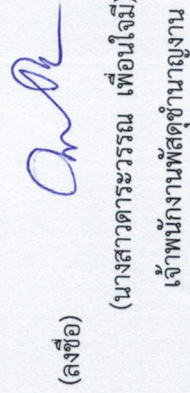 (ลงชื่อ)
(นางสาวดาระวรรณ เพื่อนใจมี)
เจ้าพนักงานพัสดุชำนาญงาน